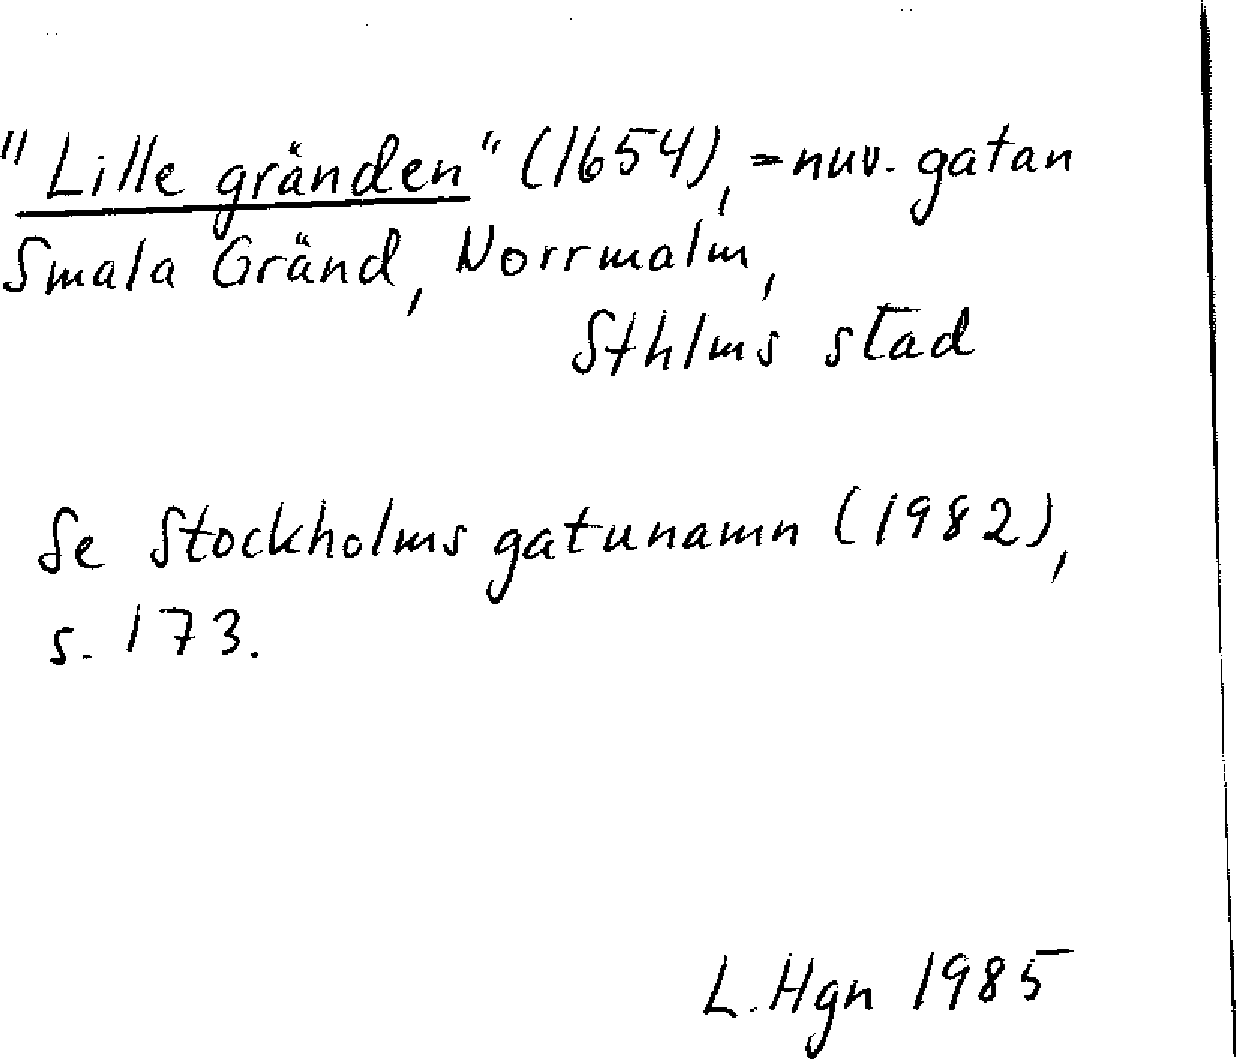 "Lille gränden" (1654), = nuv. gatan
Smala Gränd, Norrmalm,
Sthlms stad
Se Stockholms gatunamn (1982),
s. 173.
L. Hgn 1985